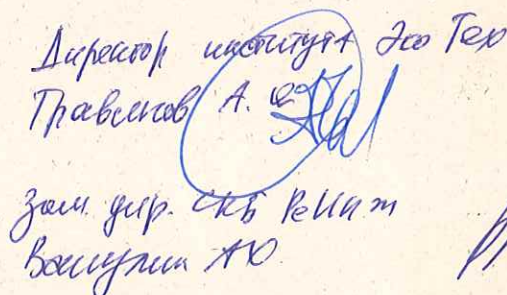 Директор института Эко Тех
Травянов А. Я.
Зам. дир. СКБ РеИнж
Вашулин АЮ